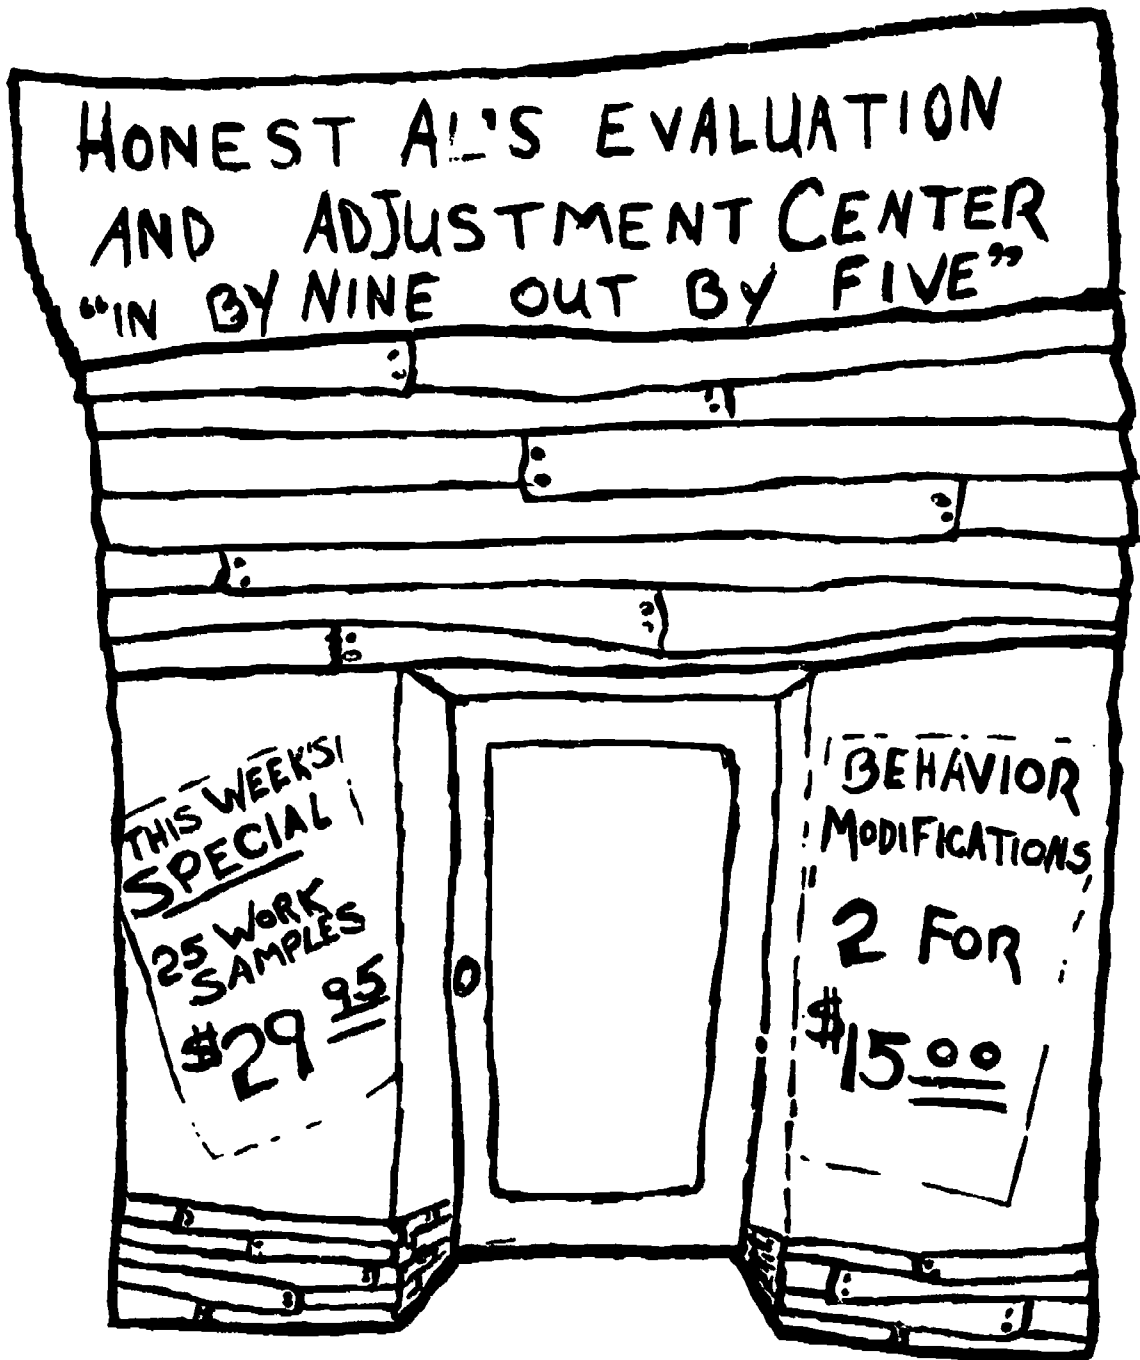 HONEST AL'S EVALUATION
AND ADJUSTMENT CENTER
"IN BY NINE OUT BY FIVE"
THIS WEEK'S!
SPECIAL
25 WORK
SAMPLES
$29 95
BEHAVIOR
MODIFICATIONS
2 FOR
$15 00